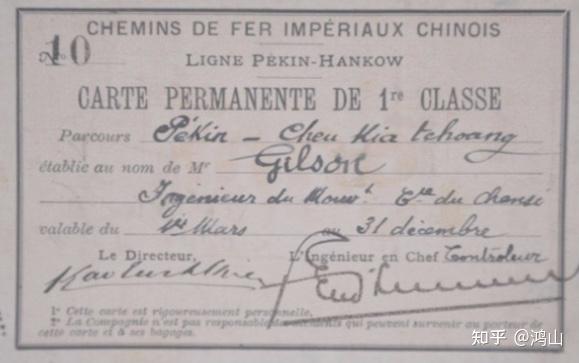 CHEMINS DE FER IMPÉRIAUX CHINOIS
No 10
LIGNE PÉKIN-HANKOW
CARTE PERMANENTE DE 1re CLASSE
Parcours Pékin - Cheu Kia tchoang
établie au nom de Mr Gilson
Ingénieur du Mouvt Cie du Chansi
valable du 1er Mars au 31 décembre
Le Directeur, L'Ingénieur en Chef Contrôleur
1° Cette carte est rigoureusement personnelle.
2° La Compagnie n'est pas responsable des accidents qui peuvent survenir au porteur de
cette carte et à ses bagages.
知乎 @鸿山